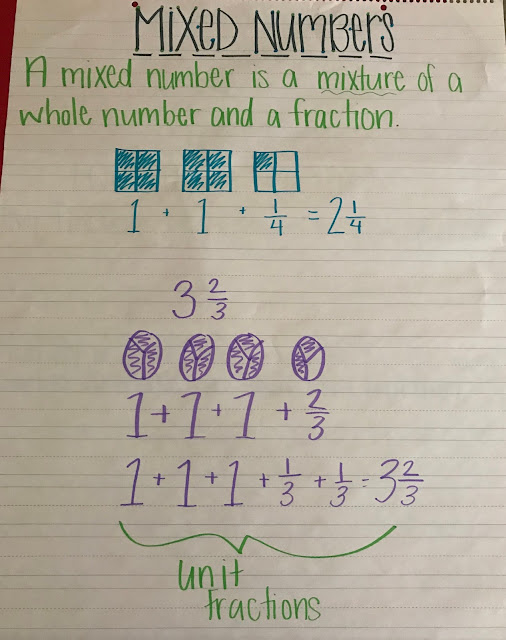 MIXED NUMBERS
A mixed number is a mixture of a
whole number and a fraction.
1 + 1 + 1/4 = 2 1/4
3 2/3
1 + 1 + 1 + 2/3
1 + 1 + 1 + 1/3 + 1/3 = 3 2/3
unit
fractions